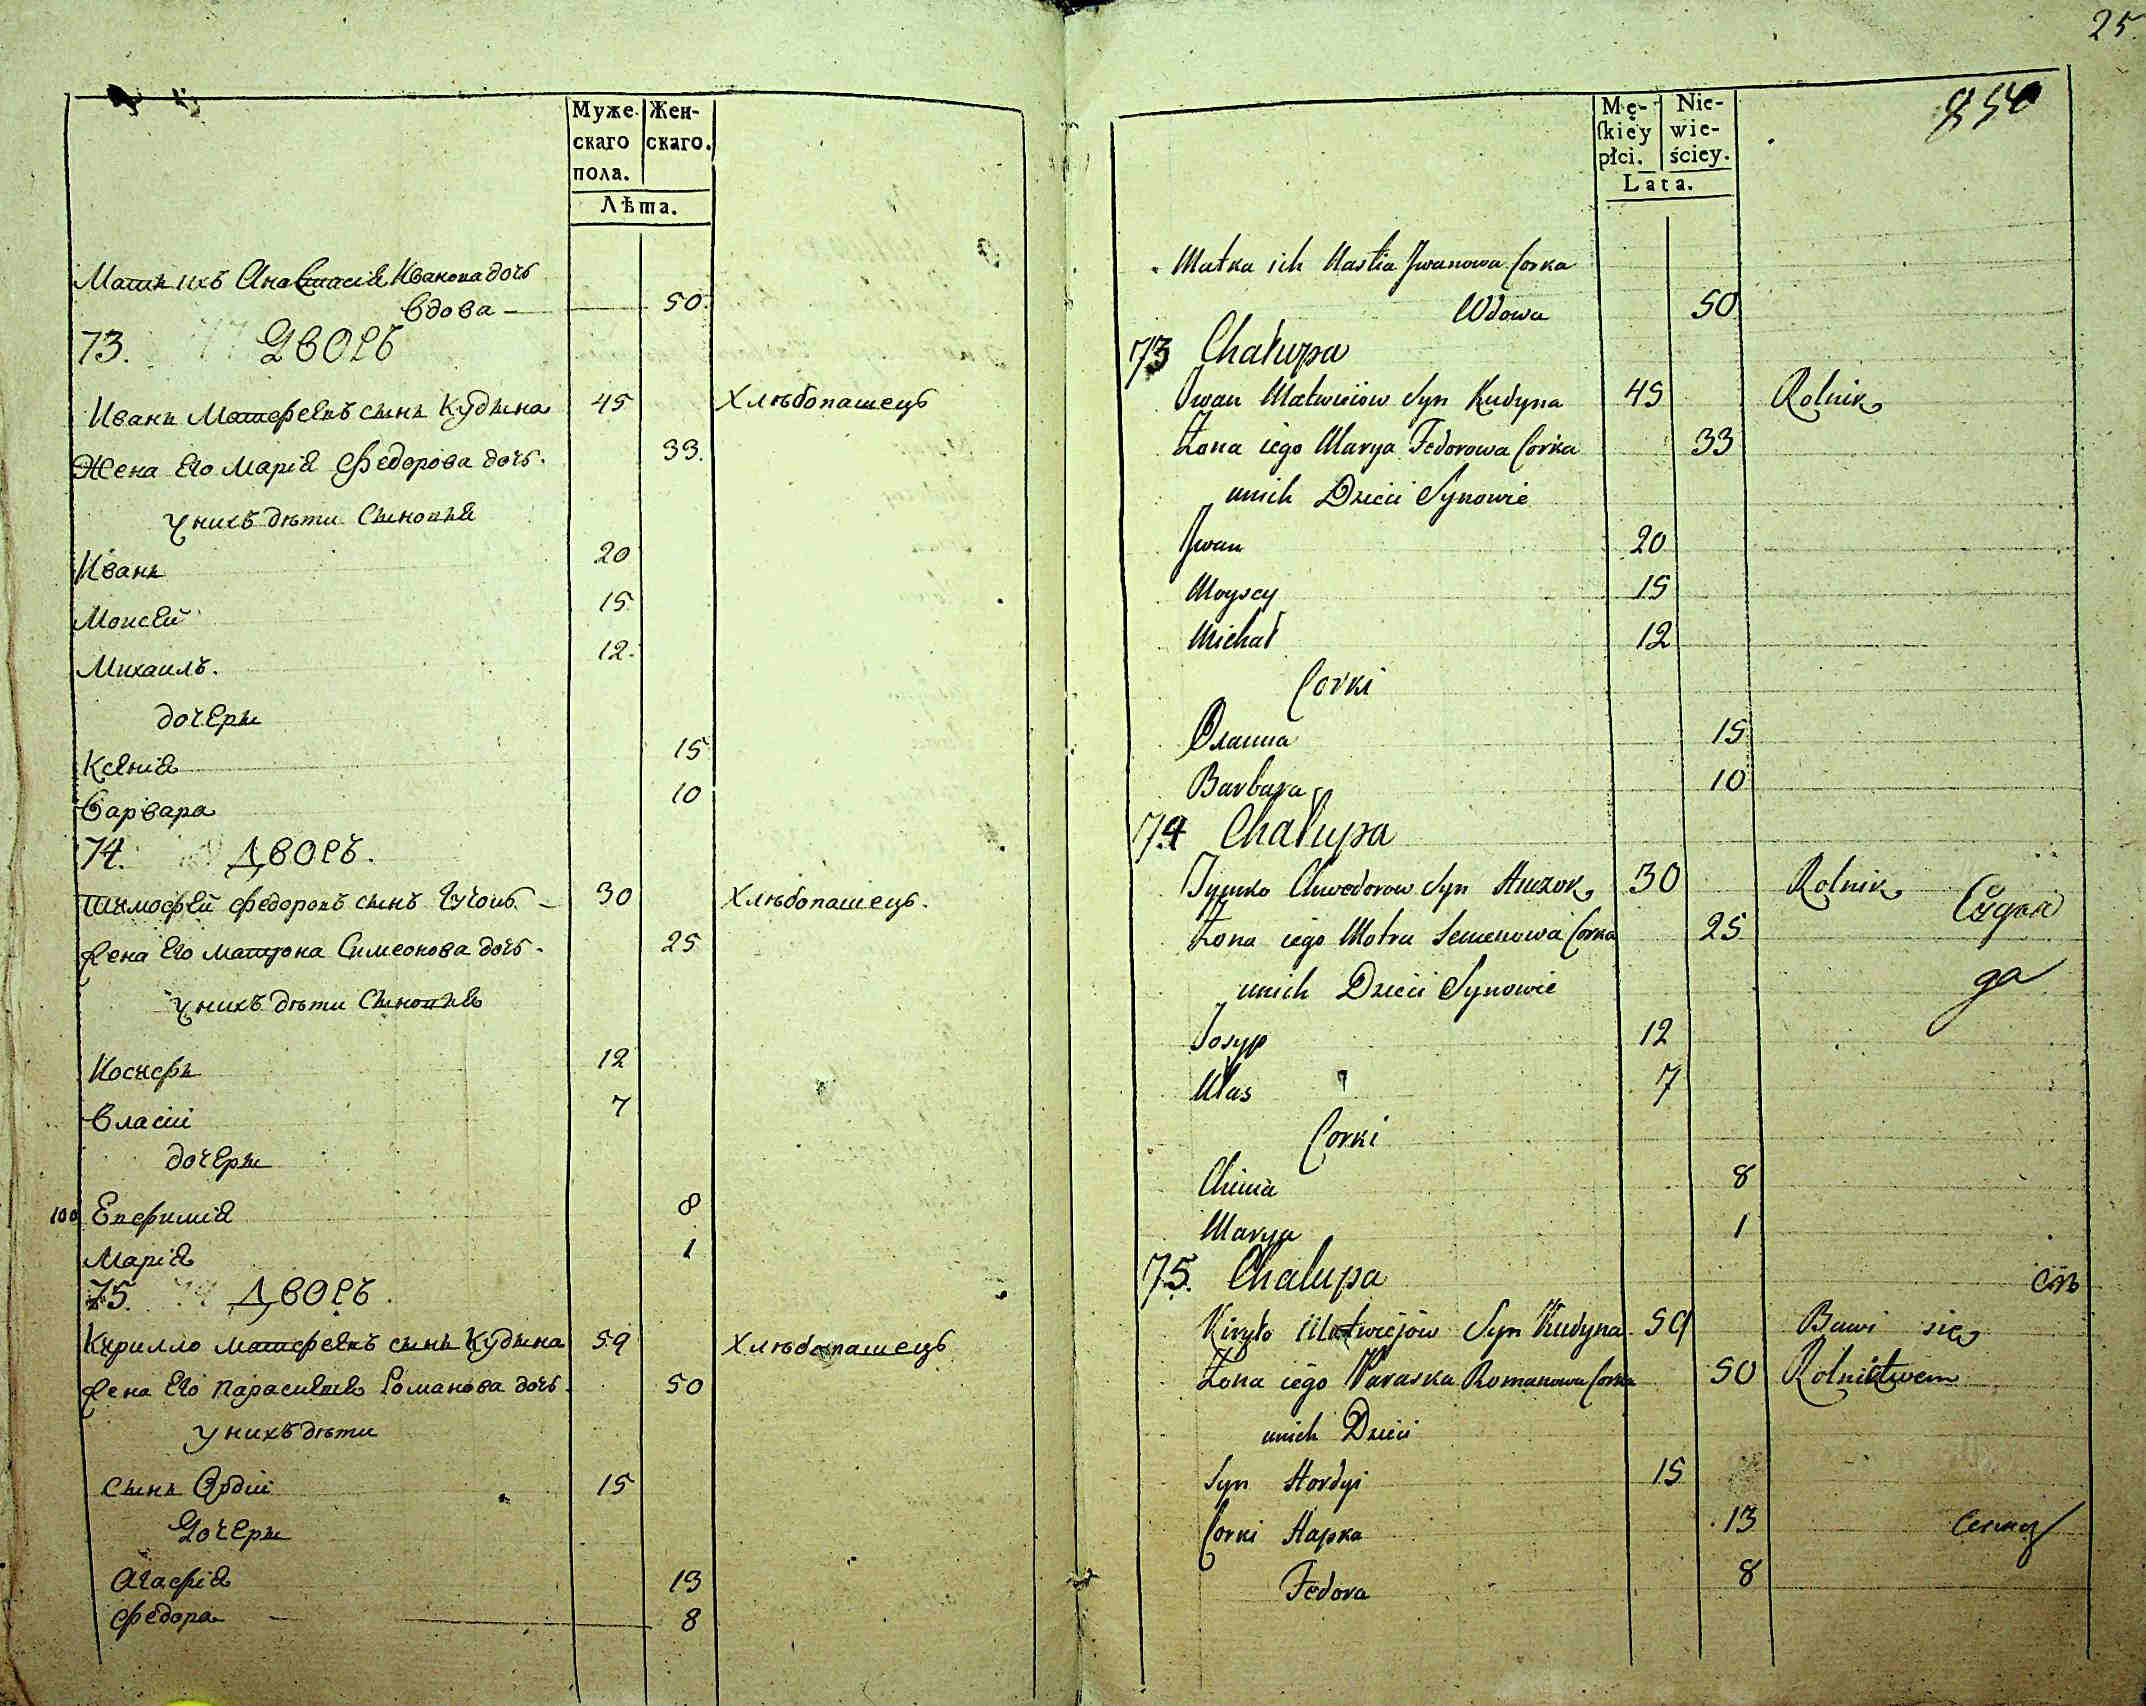 Муже- Жен-
скаго скаго.
пола.
Лѣта.
Мать ихъ Анастасія Иванова дочь
вдова — 50.
73. Дворъ
Иванъ Матфеевъ сынъ Кудына 45 Хлѣбопашецъ
Жена его Марія Федорова дочь. 33.
у нихъ дѣти Сыновья
Иванъ 20
Моисей 15
Михаилъ. 12.
дочери
Ксенія 15
Варвара 10
74. Дворъ.
Тимофей Федоровъ сынъ 30 Хлѣбопашецъ.
Жена его Матрона Симеонова дочь. 25
у нихъ дѣти Сыновья
Иосифъ 12
Власій 7
дочери
100 Евфимія 8
Марія 1
75. Дворъ.
Кирилло Матфеевъ сынъ Кудына 59 Хлѣбопашецъ
Жена его Параскевія Романова дочь. 50
у нихъ дѣти
сынъ Ордій 15
Дочери
Агафія 13
Федора 8
25.
854
Mę- Nie-
ſkiey wie-
płci. ściey.
Lata.
Matka ich Nastia Jwanowa Corka
Wdowa 50
73 Chałupa
Jwan Matwieiow Syn Kudyna 45 Rolnik
Żona iego Marya Fedorowa Corka 33
unich Dzieci Synowie
Jwan 20
Moysey 15
Michał 12
Corki
15
Barbara 10
74 Chałupa
Tymko Chwedorow Syn Huczok 30 Rolnik
Żona iego Motra Semenowa Corka 25
да
unich Dzieci Synowie
Josyp 12
Ułas 7
Corki
Chima 8
Marya 1
75. Chałupa
Kiryło Matwiejow Syn Kudyna 59 Bawi się
Żona iego Paraska Romanowa Corka 50 Rolnictwem
unich Dzieci
Syn Hordyi 15
Corki Hapka 13
Fedora 8